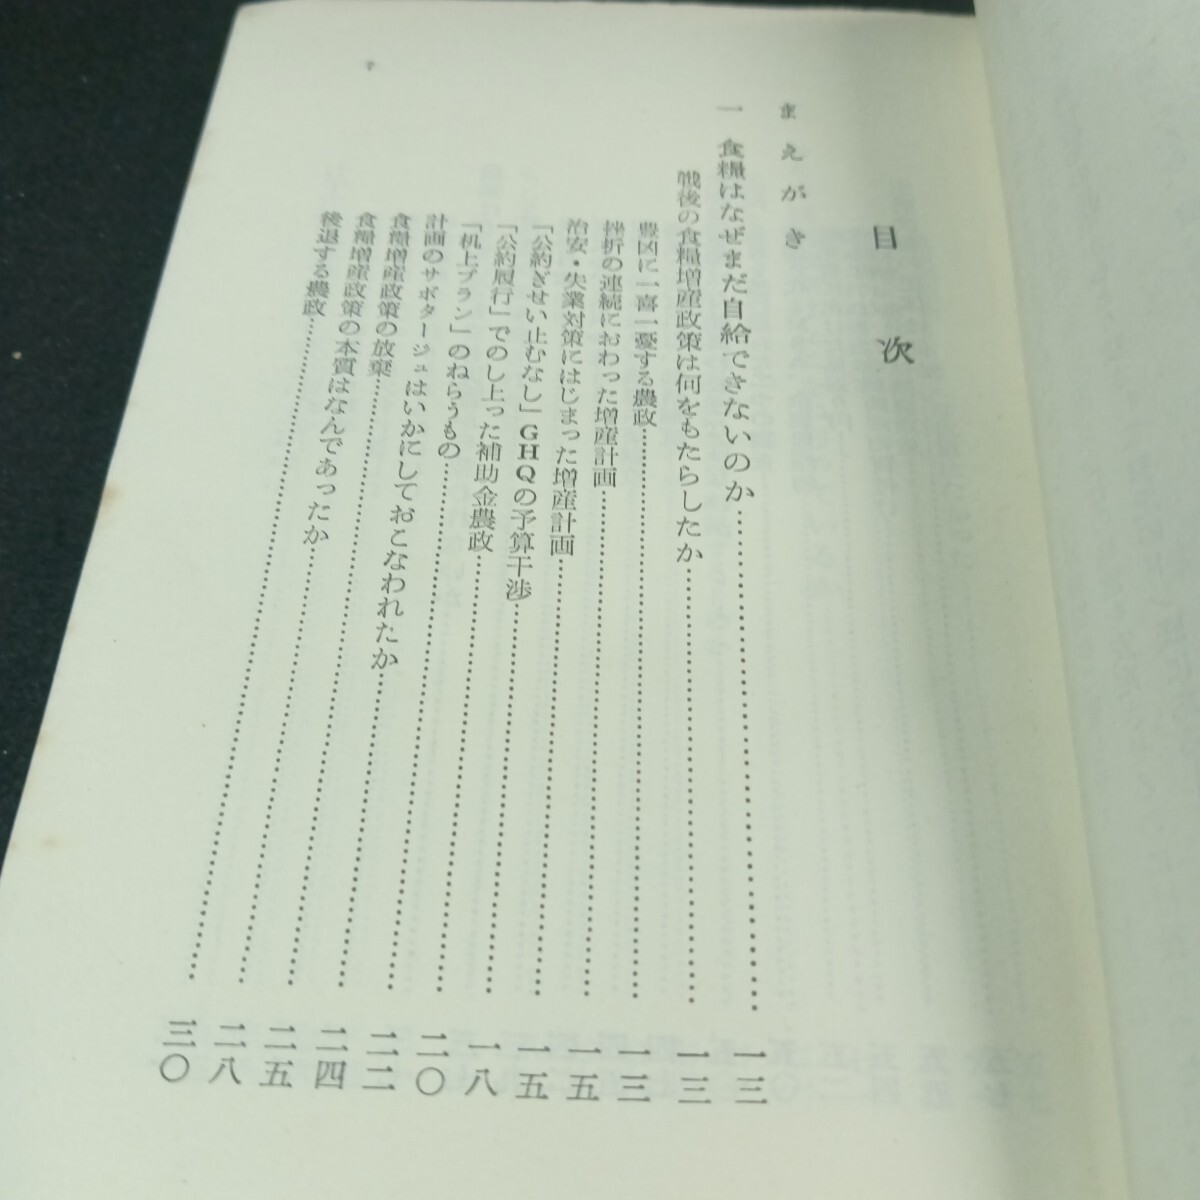 目次
まえがき
一 食糧はなぜまだ自給できないのか……一三
戦後の食糧増産政策は何をもたらしたか……一三
豊凶に一喜一憂する農政……一三
挫折の連続におわった増産計画……一五
治安・失業対策にはじまった増産計画……一五
「公約ぎせい止むなし」GHQの予算干渉……一八
「公約履行」でのし上った補助金農政……二〇
「机上プラン」のねらうもの……二二
計画のサボタージュはいかにしておこなわれたか……二四
食糧増産政策の放棄……二五
食糧増産政策の本質はなんであったか……二八
後退する農政……三〇